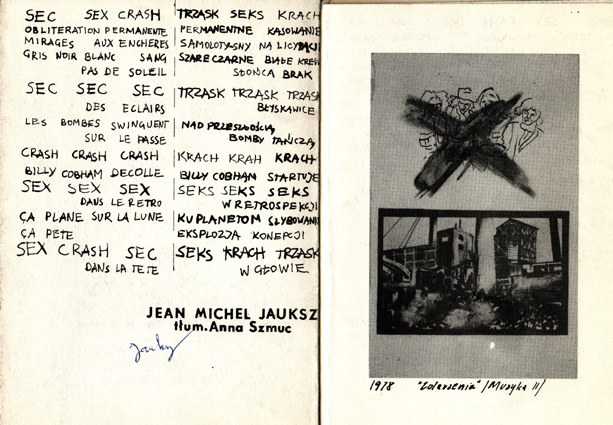 SEC SEX CRASH
OBLITERATION PERMANENTE
MIRAGES AUX ENCHERES
GRIS NOIR BLANC SANG
PAS DE SOLEIL
SEC SEC SEC
DES ECLAIRS
LES BOMBES SWINGUENT
SUR LE PASSE
CRASH CRASH CRASH
BILLY COBHAM DECOLLE
SEX SEX SEX
DANS LE RETRO
ÇA PLANE SUR LA LUNE
ÇA PETE
SEX CRASH SEC
DANS LA TETE
TRZASK SEKS KRACH
PERMANENTNE KASOWANIE
SAMOLOTY SNY NA LICYTACJI
SZARE CZARNE BIAŁE KREW
SŁOŃCA BRAK
TRZASK TRZASK TRZASK
BŁYSKAWICE
NAD PRZESZŁOŚCIĄ
BOMBY TAŃCZĄ
KRACH KRAH KRACH
BILLY COBHAM STARTUJE
SEKS SEKS SEKS
W RETROSPEKCJI
KU PLANETOM
EKSPLOZJA KONEPCJI
SEKS KRACH TRZASK
W GŁOWIE
JEAN MICHEL JAUKSZ
tłum. Anna Szmuc
1978 "Zdarzenia" /Muzyka II/